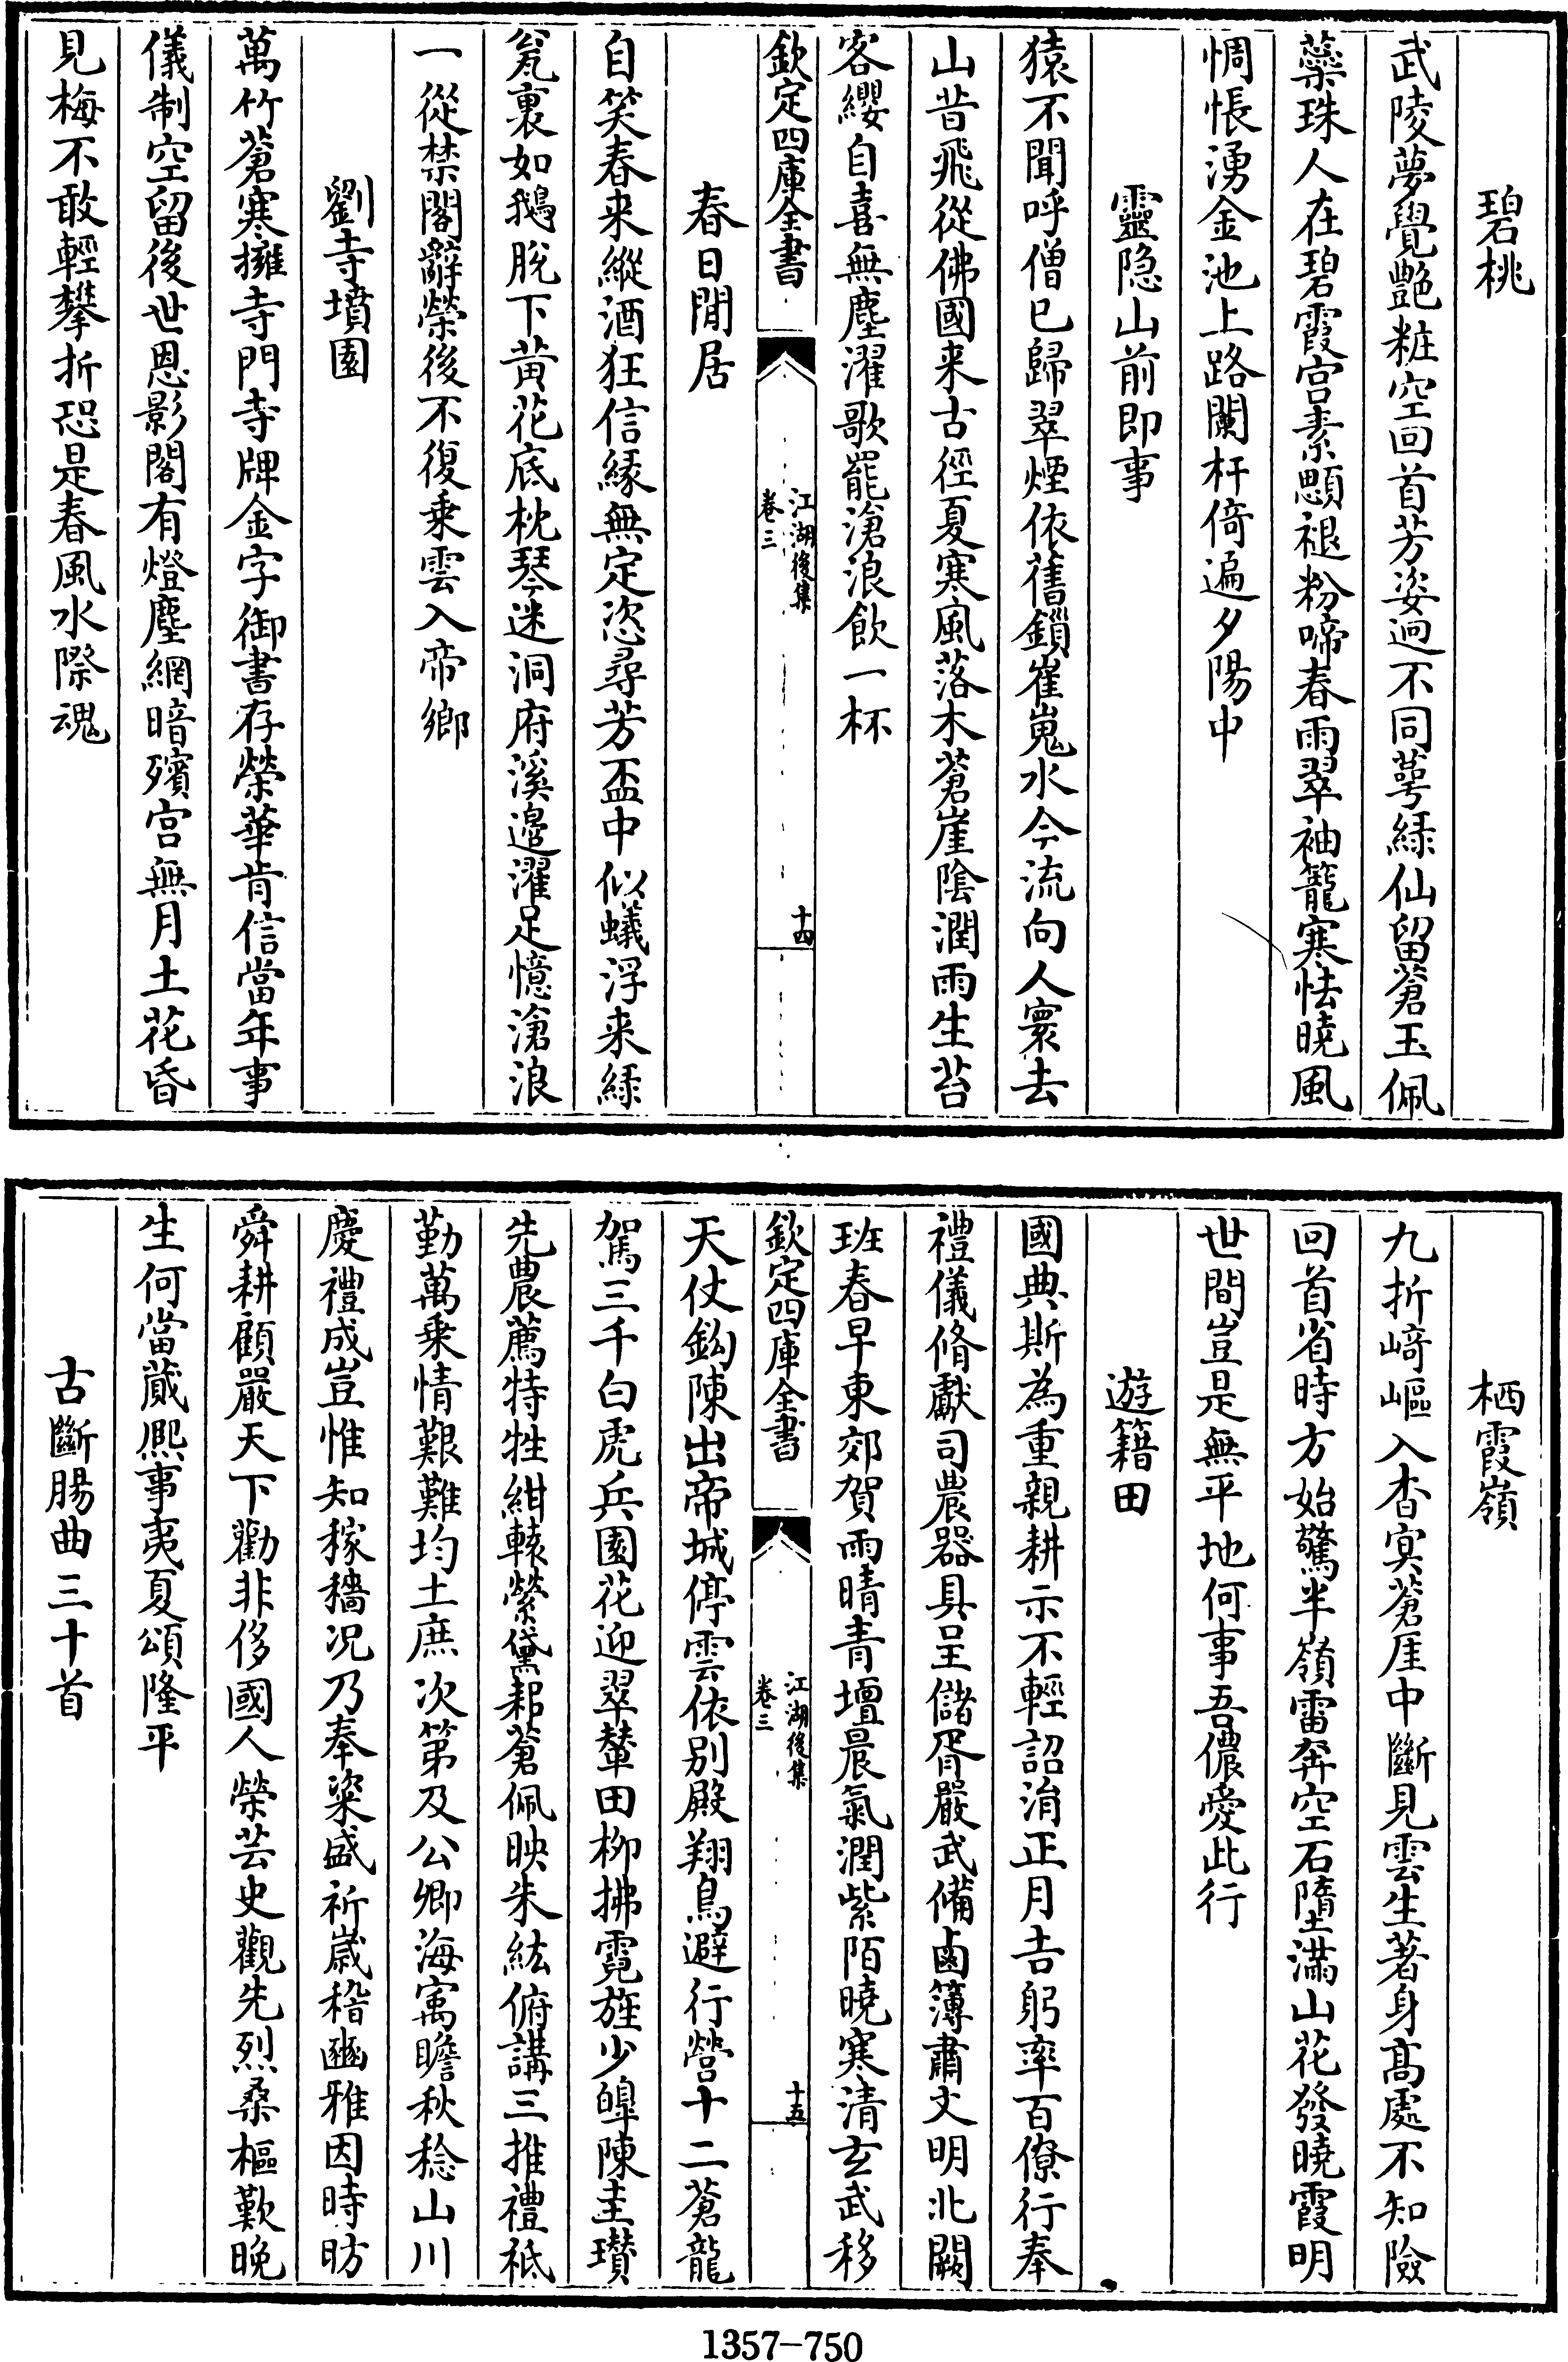 碧桃
武陵夢覺艶粧空回首芳姿逈不同蕚緑仙留蒼玉佩
蘂珠人在碧霞宫素顋褪粉啼春雨翠袖籠寒怯曉風
惆悵湧金池上路闌杆倚遍夕陽中
靈隐山前即事
猿不聞呼僧已歸翠煙依舊鎖崔嵬水今流向人寰去
山昔飛從佛國来古徑夏寒風落木蒼崖陰潤雨生苔
客纓自喜無塵濯歌罷滄浪飲一杯
欽定四庫全書
江湖後集
卷三
十四
春日閒居
自笑春来縱酒狂信緣無定恣尋芳盃中似蟻浮来緑
瓮裏如鵝脫下黄花底枕琴迷洞府溪邉濯足憶滄浪
一從禁閣辭榮後不復乗雲入帝鄉
劉寺墳園
萬竹蒼寒擁寺門寺牌金字御書存榮華肯信當年事
儀制空留後世恩影閣有燈塵網暗殯宫無月土花昏
見梅不敢輕攀折恐是春風水際魂
栖霞嶺
九折﨑嶇入杳冥蒼厓中斷見雲生著身髙處不知險
回首省時方始驚半嶺雷奔空石墮滿山花發曉霞明
世間豈是無平地何事吾儂愛此行
遊籍田
國典斯為重親耕示不輕詔涓正月吉躬率百僚行奉
禮儀脩獻司農器具呈儲胥嚴武備鹵簿肅文明北闕
班春早東郊賀雨晴青壇晨氣潤紫陌曉寒清玄武移
欽定四庫全書
江湖後集
卷三
十五
天仗鈎陳出帝城停雲依别殿翔鳥避行營十二蒼龍
駕三千白虎兵園花迎翠輦田柳拂霓旌少皥陳圭瓚
先農薦特牲紺轅縈黛耜蒼佩映朱紘俯講三推禮祇
勤萬乗情艱難均土庶次第及公卿海寓瞻秋稔山川
慶禮成豈惟知稼穡况乃奉粢盛祈嵗稽豳雅因時昉
舜耕顧嚴天下勸非侈國人榮芸史觀先烈桑樞歎晚
生何當蕆熈事夷夏頌隆平
古斷腸曲三十首
1357-750